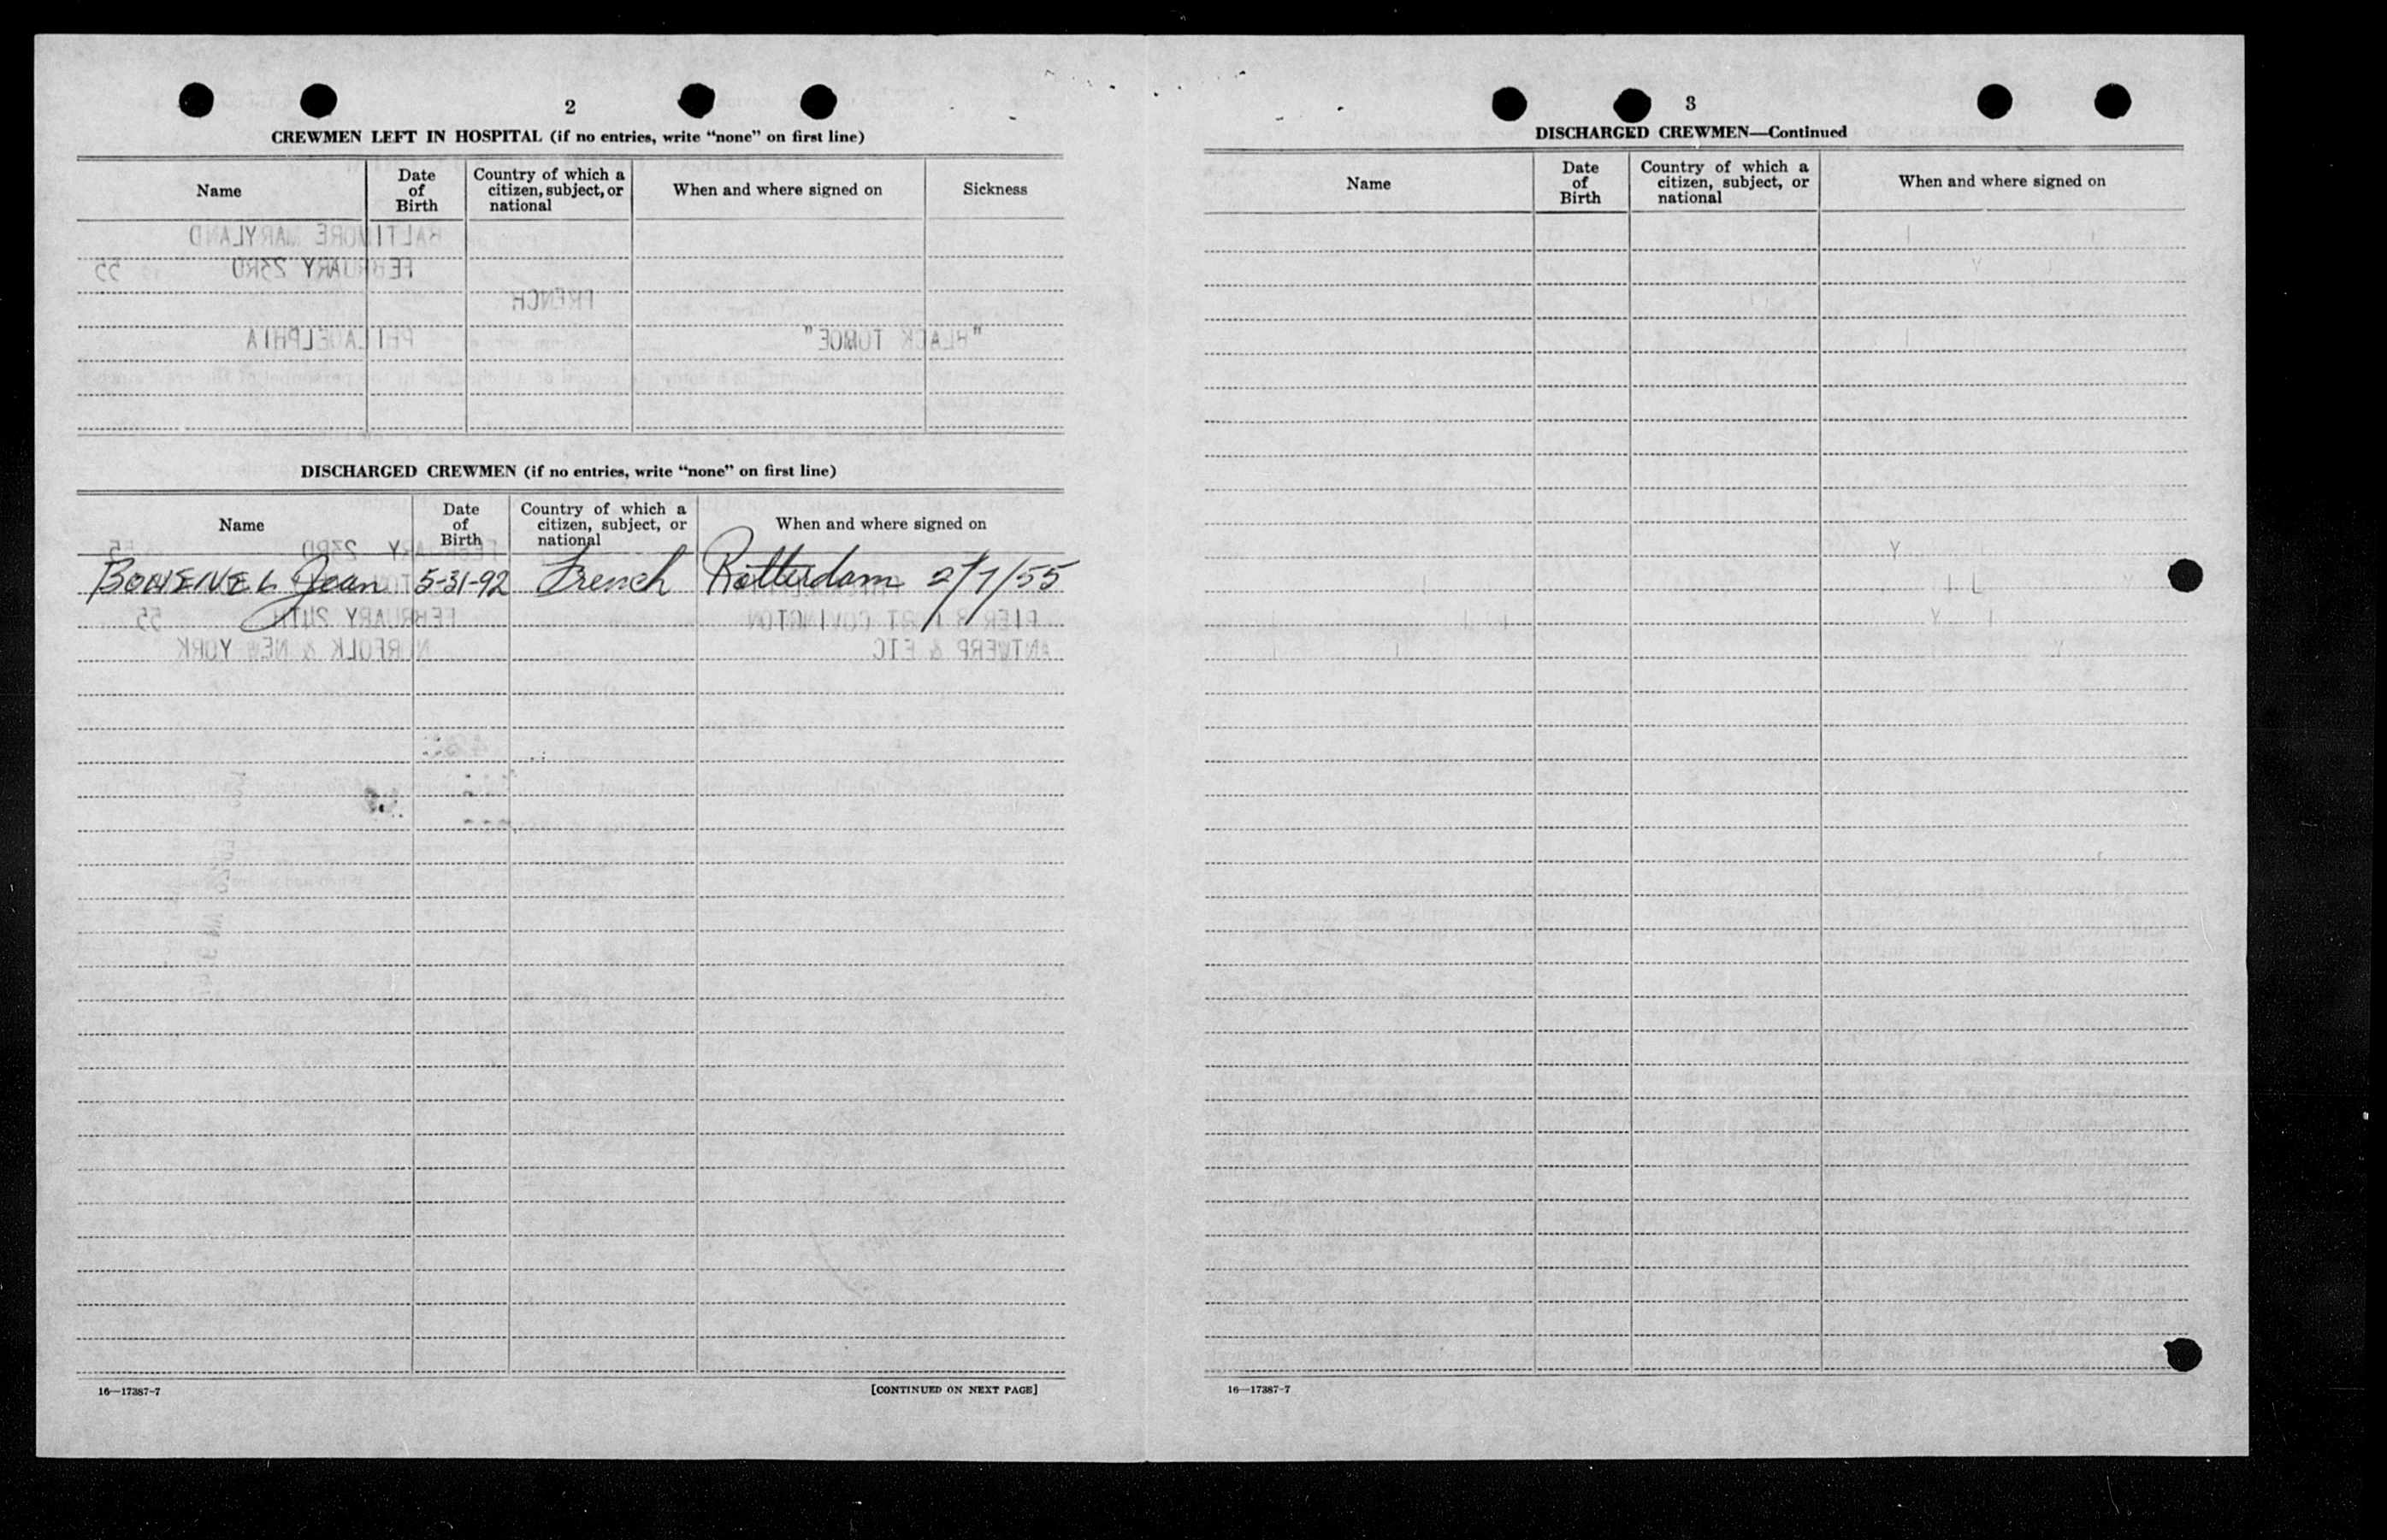 2
CREWMEN LEFT IN HOSPITAL (if no entries, write “none” on first line)
Name Date of Birth Country of which a citizen, subject, or national When and where signed on Sickness
BALTIMORE MARYLAND
FEBRUARY 23RD 55
FRENCH
PHILADELPHIA
DISCHARGED CREWMEN (if no entries, write “none” on first line)
Name Date of Birth Country of which a citizen, subject, or national When and where signed on
FEBRUARY 23RD 55
Jean 5-31-92 French Rotterdam 2/7/55
FEBRUARY 24TH 55
PIER 8 PORT COVINGTON
NORFOLK & NEW YORK
ANTWERP & ETC
16—17387-7 [CONTINUED ON NEXT PAGE]
3
DISCHARGED CREWMEN—Continued
Name Date of Birth Country of which a citizen, subject, or national When and where signed on
16—17387-7